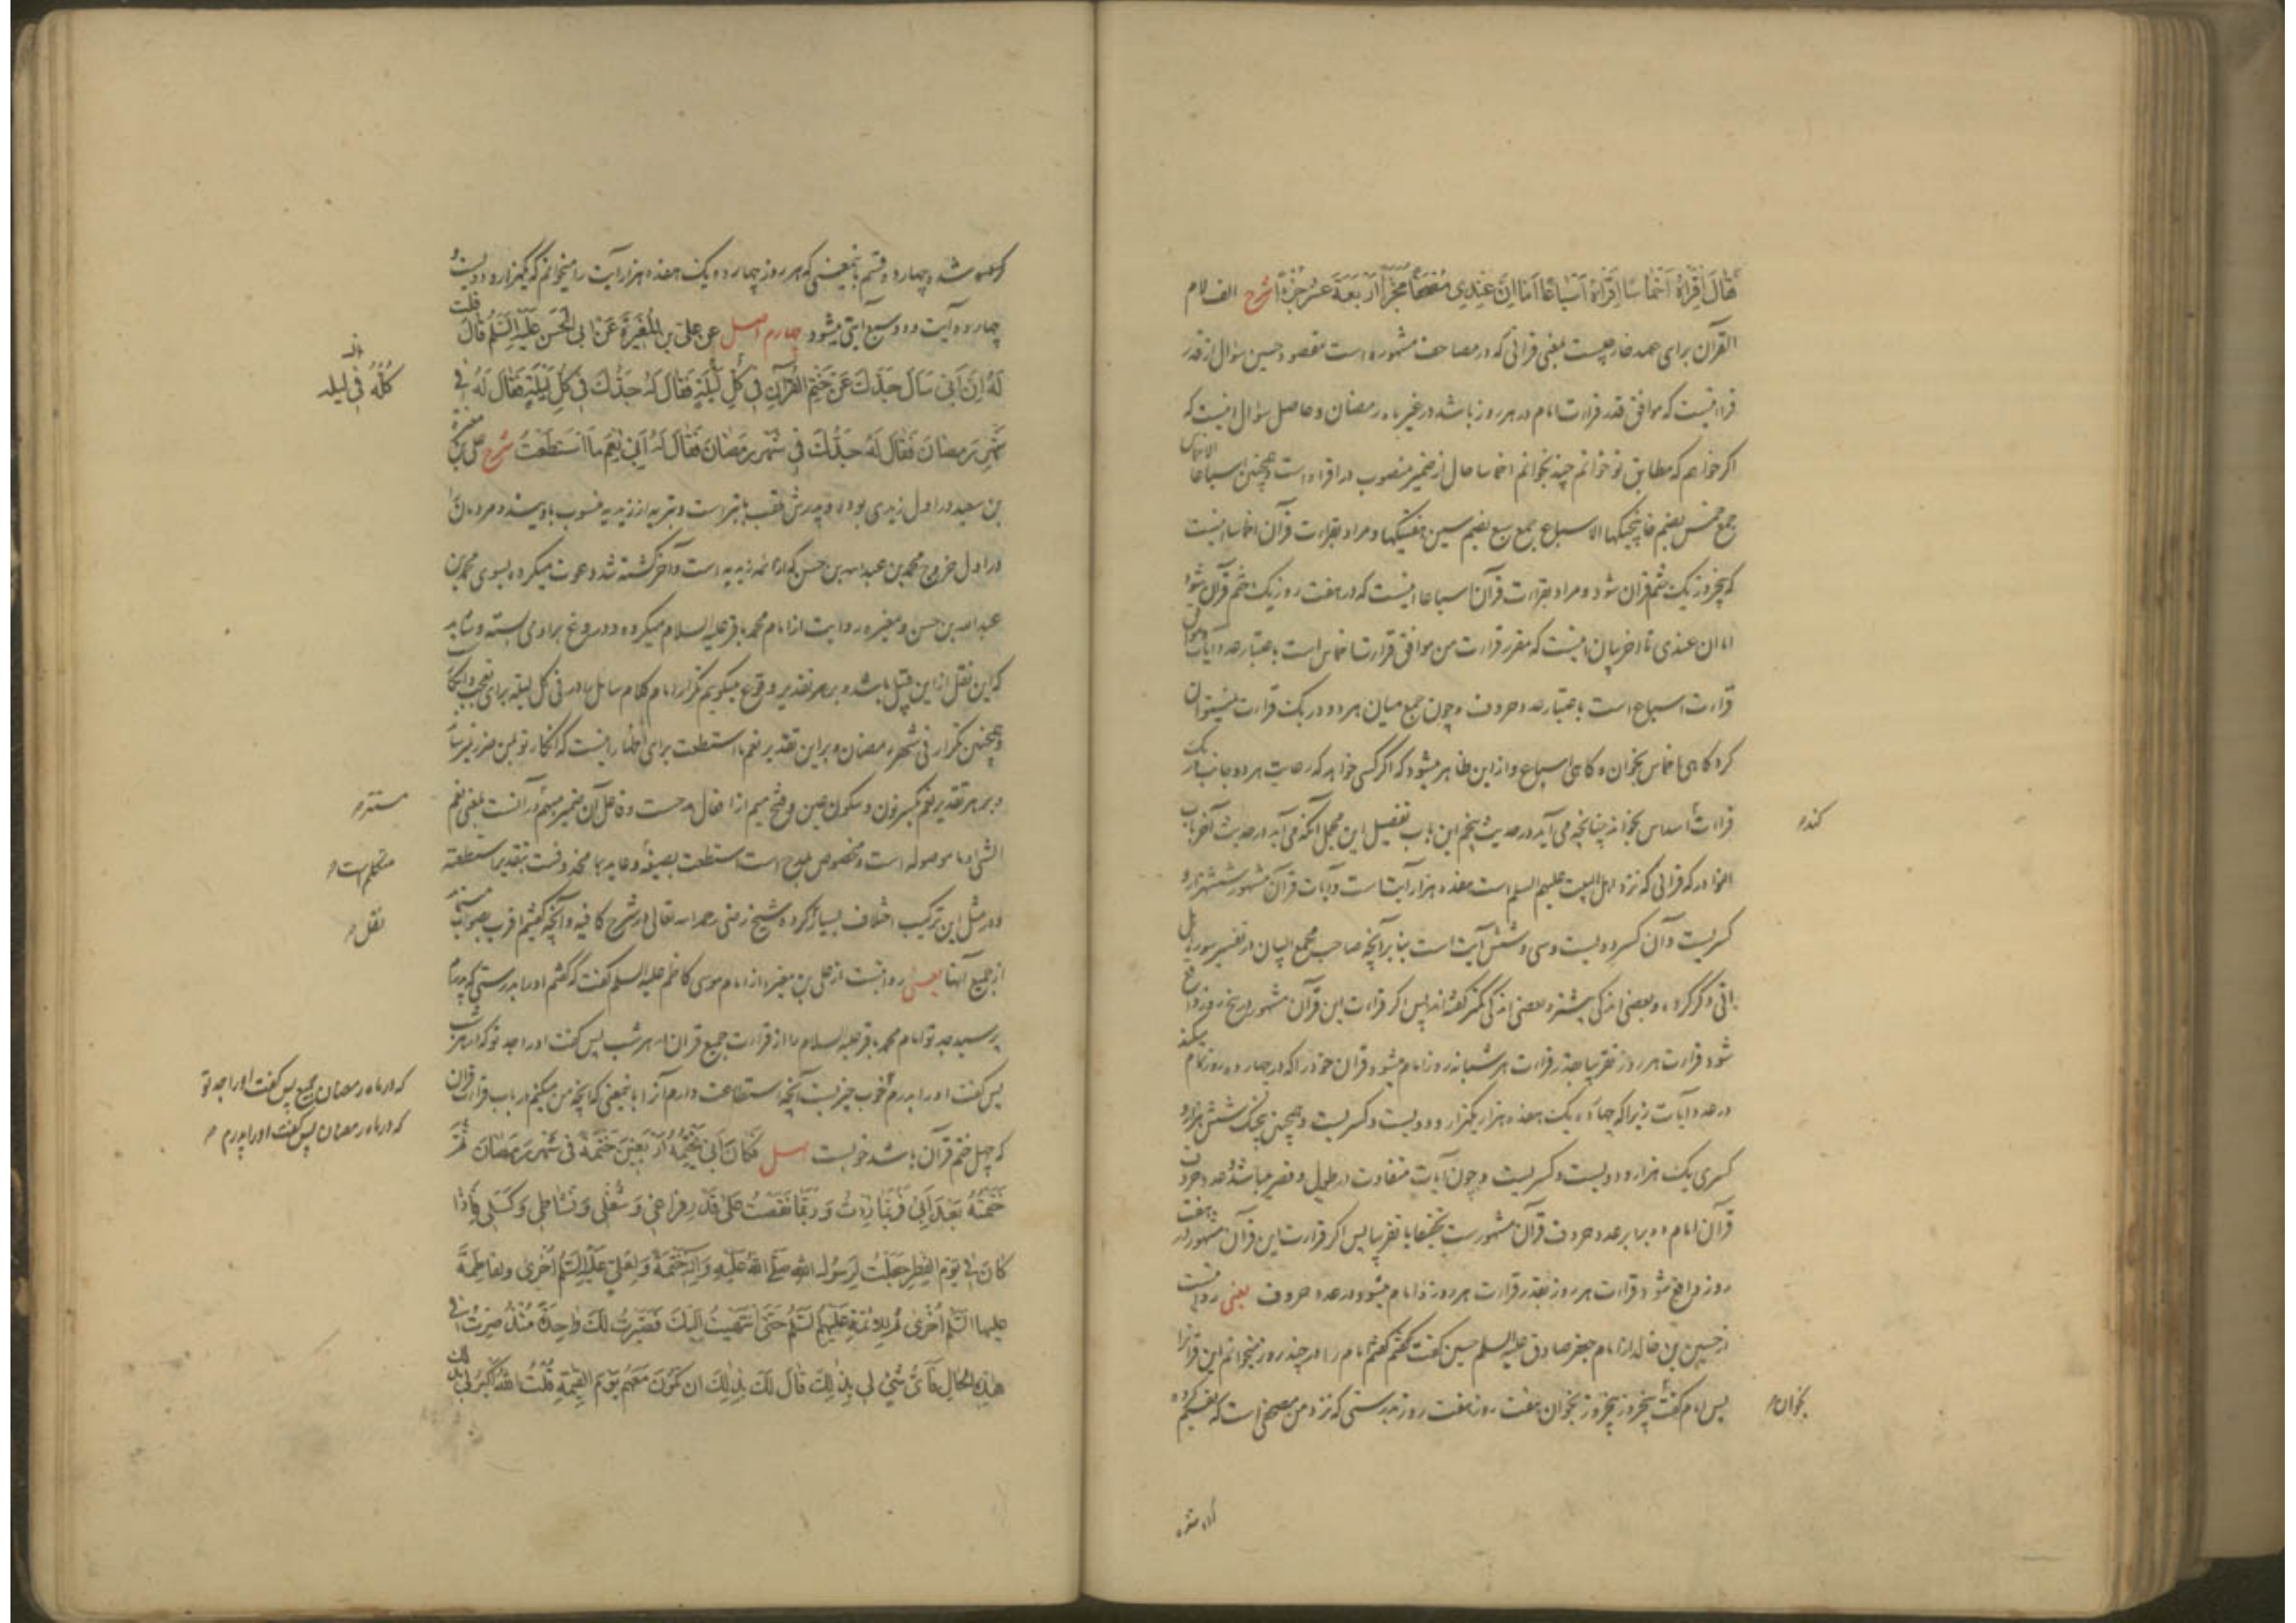 فقال اقراه اخماسا اقراه اسباعا اما ان عندی مصحفا مجزا اربعة عشر جزءا شرح الف لام
القرآن برای عهد خارجیست یعنی قرآنی که در مصاحف مشهوره است مقصود حسین سؤال از قدر
قراءتیست که موافق قدر قراءت امام در هر روز باشد در غیر ماه رمضان و حاصل سؤال اینست که
اگر خواهم که مطابق تو خوانم چند بخوانم اخماسا حال از ضمیر منصوب در اقراه است و همچنین اسباعا الاخماس
جمع خمس بضم خا پنجیکها الاسباع جمع سبع بضم سین هفتیکها و مراد بقراءت قرآن اخماسا اینست
که پنجروز یک ختم قرآن شود و مراد بقراءت قرآن اسباعا اینست که در هفت روز یک ختم قرآن شود
اما ان عندی تا آخر بیان اینست که مقرر قراءت من موافق قراءت اخماس است باعتبار عدد آیات و موافق
قراءت اسباع است باعتبار عدد حروف و چون جمع میان هر دو در یک قراءت نمیتوان
کرد گاهی اخماس بخوان و گاهی اسباع و از این ظاهر میشود که اگر کسی خواهد که رعایت هر دو جانب در یک
قراءت اسداس بخواند چنانچه می آید در حدیث پنجم این باب تفصیل این مجمل آنکه می آید در حدیث آخر باب
کند
النوادر که قرآنی که نزد اهل البیت علیهم السلم است هفده هزار آیتست و آیات قرآن مشهور ششهزار و
کسریست و آن کسر دویست و سی و شش آیت است بنا بر آنچه صاحب مجمع البیان در تفسیر سوره هل
اتی ذکر کرده و بعضی اندکی بیشتر و بعضی اندکی کمتر گفته اند پس اگر قراءت این قرآن مشهور در پنج روز واقع
شود قراءت هر روز تقریبا بقدر قراءت هر شبانه روز امام میشود قرآن خود را که در چهارده روز تمام میکند
در عدد آیات زیرا که چهارده یک هفده هزار یکهزار و دویست و کسریست و همچنین پنجیک شش هزار و
کسری یک هزار و دویست و کسریست و چون آیات متفاوت در طول و قصر میباشد عدد حروف
قرآن امام دو برابر عدد حروف قرآن مشهورست تخفیفا یا تقریبا پس اگر قراءت این قرآن مشهور در هفت
روز واقع شود قراءت هر روز بقدر قراءت هر روز امام میشود در عدد حروف یعنی روایتست
از حسین بن خالد از امام جعفر صادق علیه السلم حسین گفت که گفتم امام را در چند روز میخوانم این قرآن را
پس امام گفت پنجروز پنجروز بخوان هفت روز هفت روز بدرستی که نزد من مصحفی است که تقسیم کرده
بخوان
شده چهارده قسم باینمعنی که هر روز چهارده یک هفده هزار آیت را میخوانم که یکهزار و دویست و
چهارده آیت و دو سبع آیتی میشود چهارم اصل عن علی بن المغیرة عن ابی الحسن علیه السلم قال قلت
له ان ابی سال جدک عن ختم القرآن فی کل لیلة فقال له جدک فی کل لیلة فقال له فی
کله فی لیله
شهر رمضان فقال له جدک فی شهر رمضان فقال له ابی نعم ما استطعت شرح علی بن مغیره
بن سعید در اول زیدی بوده و پدرش ملقب بابتر است و بتریه از زیدیه منسوب باویند و مردمان را
در اول خروج محمد بن عبدالله بن حسن که از ائمه زیدیه است و آخر کشته شد دعوت میکرده بسوی محمد بن
عبدالله بن حسن و مغیره روایت از امام محمد باقر علیه السلام میکرده و دروغ بر او می بسته و شاید
که این نقل از این قبیل باشد و بر هر تقدیر وقوع میگوییم تکرار امام کلام سائل را در فی کل لیلة برای تعجب و انکار
و همچنین تکرار فی شهر رمضان و بر این تقدیر نعم ما استطعت برای اظهار اینست که انکار تو بمن ضرر نمیرساند
و بر هر تقدیر نعم بکسر نون و سکون عین و فتح میم از افعال مدحست و فاعل آن ضمیر مبهم در آنست یعنی نعم
مستتر
الشیء و ما موصوله است و مخصوص بمدح است استطعت بصیغه و عاید بما محذوفست بتقدیر استطعته
متکلم است
و در مثل این ترکیب اختلاف بسیار کرده شیخ رضی رحمه الله تعالی در شرح کافیه و آنچه گفتیم اقرب بصوابست
نقل
از جمیع آنها یعنی روایتست از علی بن مغیره از امام موسی کاظم علیه السلم گفت که گفتم او را بدرستی که پدرم
پرسید جد تو امام محمد باقر علیه السلام را از قراءت جمیع قرآن در هر شب پس گفت او را جد تو که در هر شب
پس گفت او را پدرم خوب چیزیست آنچه استطاعت دارم آنرا باینمعنی که آنچه من میکنم در باب قراءت قرآن
که در ماه رمضان جمیع پس گفت او را جد تو
که در ماه رمضان پس گفت او را پدرم
که چهل ختم قرآن باشد خوبست اصل فکان ابی یختمه اربعین ختمة فی شهر رمضان ثم
ختمته بعد ابی فربما زدت و ربما نقصت علی قدر فراغی و شغلی و نشاطی و کسلی فاذا
کان فی یوم الفطر جعلت لرسول الله صلی الله علیه و آله ختمة و لعلی علیه السلم اخری و لفاطمة
علیها السلم اخری ثم للائمة علیهم السلم حتی انتهیت الیک فصیرت لک واحدة منذ صرت فی
هذه الحال فای شیء لی بذلک قال لک بذلک ان تکون معهم یوم القیمة قلت الله اکبر لی بذلک